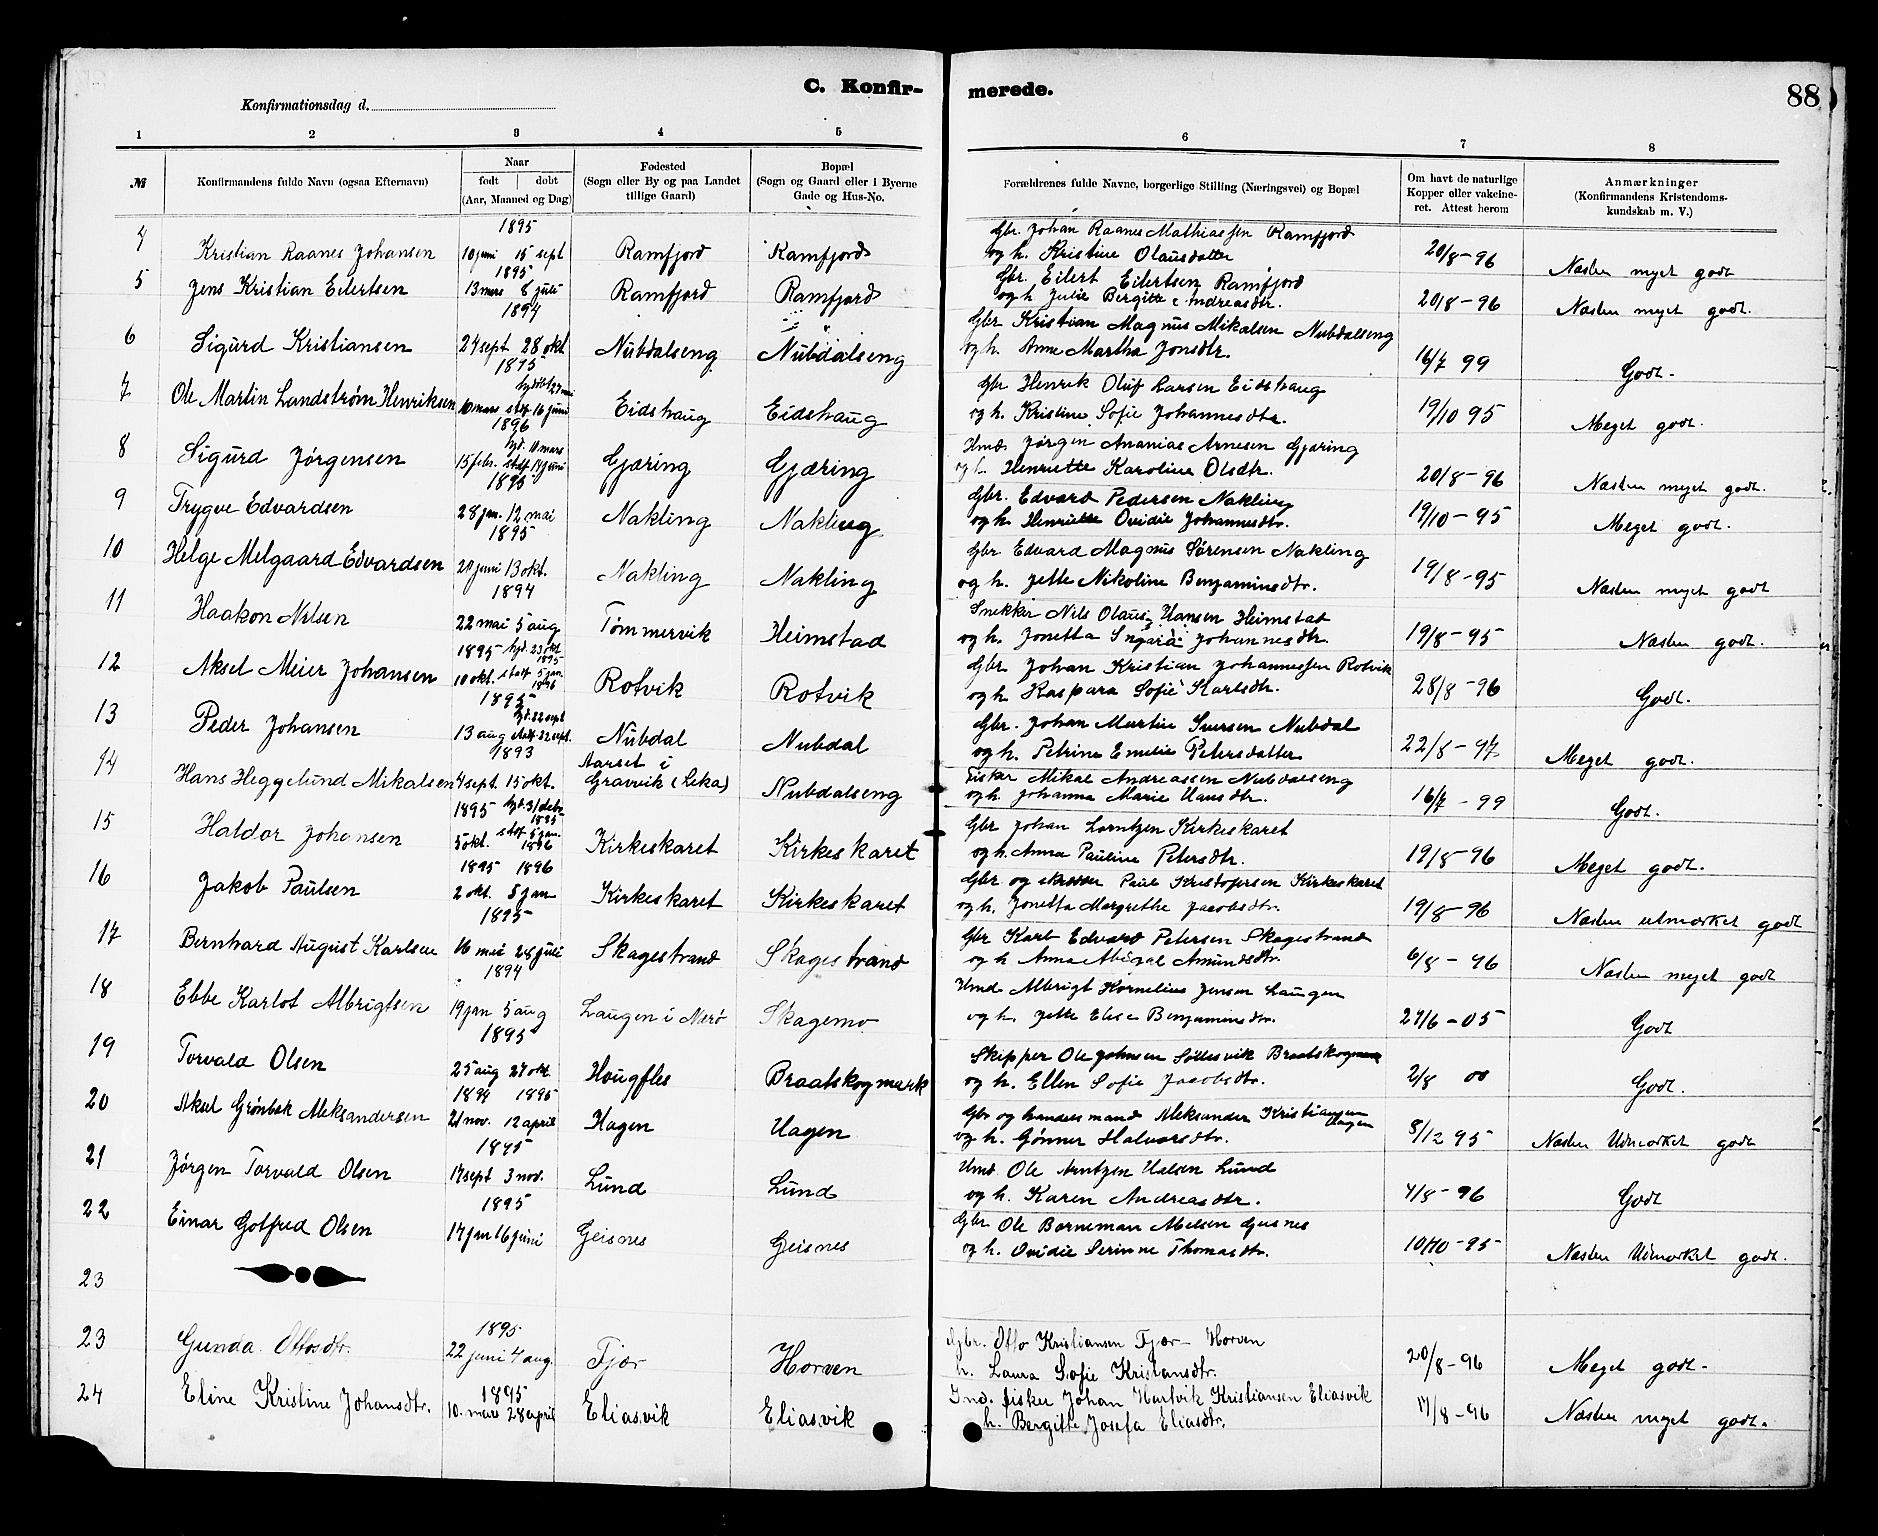 C. Konfir-merede.
88
Konfirmationsdag d.
1 2 3 4 5 6 7 8
№
Konfirmandens fulde Navn (ogsaa Efternavn)
Naar
født | døbt
(Aar, Maaned og Dag)
Fødested
(Sogn eller By og paa Landet
tillige Gaard)
Bopæl
(Sogn og Gaard eller i Byerne
Gade og Hus-No.
Forældrenes fulde Navne, borgerlige Stilling (Næringsvei) og Bopæl
Om havt de naturlige
Kopper eller vakcine-
ret. Attest herom
Anmærkninger
(Konfirmandens Kristendoms-
kundskab m. V.)
1895
Gbr Johan Raanes Mathiassen Ramfjord
4 Kristian Raanes Johansen 10 juni 15 sept Ramfjord Ramfjord og h. Kristine Olausdatter 20/8-96 Næsten myet godt
1895
Gbr. Eilert Eilertsen Ramfjord
5 Jens Kristian Eilertsen 13 mars 8 juli Ramfjord Ramfjord og h Julie Bergitte Andreasdtr. 20/8-96 Næsten myet godt.
1894
Gbr Kristian Magnus Mikalsen Nubdalseng
6 Sigurd Kristiansen 27 sept 28 okt Nubdalseng Nubdalseng og h. Anne Martha Jonsdtr. 16/7 99 Godt.
1895
Gbr Henrik Oluf Larsen Eidshaug
7 Ole Martin Lundstrøm Henriksen 10 mars stdf 16 juni Eidshaug Eidshaug og h. Kristine Sofie Johannesdtr. 19/10 95 Meget godt.
1896 hjd. 10 mars
Hmd. Jørgen Ananias Arnesen Gjæring
8 Sigurd Jørgensen 15 febr. stdf 14 juni Gjæring Gjæring og h. Henriette Karoline Olsdtr. 20/8-96 Næsten myet godt.
1895
Gbr. Edvard Pedersen Nakling
9 Trygve Edvardsen 28 jan. 12 mai Nakling Nakling og h. Henriette Ovidie Johannesdtr. 19/10-95 Meget godt.
1895
Gbr Edvard Magnus Sørensen Nakling
10 Helge Melgaard Edvardsen 20 juni 13 okt. Nakling Nakling og h. Jette Nikoline Benjaminsdtr. 19/8-95 Næsten myet godt
1894
Snekker Nils Olaus Hansen Heimstad
11 Haakon Nilsen 22 mai 5 aug Tømmervik Heimstad og h. Jonetta Johannesdtr. 19/8-95 Næsten godt.
1895 hjd. 23 okt 1895
Gbr Johan Kristian Johannessen Rotvik
12 Aksel Meier Johansen 10 okt. stdf 5 jan. 1896 Rotvik Rotvik og h. Kaspara Sofie Karlsdtr. 28/8-96 Godt.
1895 hjd. 22 sept
Gbr. Johan Martin Iversen Nubdal
13 Peder Johansen 13 aug stdf. 22 sept. Nubdal Nubdal og h. Petrine Emelie Petersdatter 22/8-97 Meget godt.
1893 Aarset i
Fisker Mikal Andreassen Nubdalseng
14 Hans Heggelund Mikalsen 4 sept. 15 okt. Gravvik (Leka) Nubdalseng og h. Johanna Marie Hansdtr. 16/7-99 Godt.
1895 hjd. 31/debr. 1895
Gbr Johan Lorntzen Kirkeskaret
15 Haldor Johansen 5 okt. stdf 5 jan. 1896 Kirkeskaret Kirkeskaret og h. Anna Pauline Petersdtr. 19/8-96 Meget godt.
1895 1896
Gbr og Paul Kristofersen Kirkeskaret
16 Jakob Paulsen 2 okt. 5 jan Kirkeskaret Kirkeskaret og h. Jonetta Margrethe Jacobsdtr. 19/8-96 Næsten utmærket godt
1895
Gbr Karl Edvard Petersen Skagestrand
17 Bernhard August Karlsen 16 mai 28 juli Skagestrand Skagestrand og h Anna Abigal Amundsdtr. 6/8-96 Næsten myet godt
1894
Hmd Albrigt Kornelius Jensen Laugen
18 Ebbe Karlot Albrigtsen 19 jan 5 aug Laugen i Nærø Skagemo og h. Jette Elise Benjaminsdtr. 27/6-05 Godt
1895
Skipper Ole Johnsen Sollesvik Braatskogmark
19 Torvald Olsen 25 aug 27 okt. Hougfles Braatskogmark og h. Ellen Sofie Jacobsdtr. 2/8 00 Godt.
1894 1895
Gbr og handelsmand Aleksander Kristiansen Hagen
20 Aksel Grønbek Aleksandersen 21 nov. 12 april Hagen Hagen og h. Gønner Halvorsdtr. 8/12 95 Næsten Udmærket godt
1895
Hmd. Ole Arntzen Halsen Lund
21 Jørgen Torvald Olsen 17 sept 3 nov. Lund Lund og h. Karen Andreasdtr. 4/8-96 Godt
1895
Gbr Ole Borneman Nielsen Geisnes
22 Einar Gotfred Olsen 17 jan 16 juni Geisnes Geisnes og h. Ovidie Serinne Thomasdtr. 10/10-95 Næsten Udmærket godt.
23
1895
Gbr. Otto Kristiansen Fjær - Horven
23 Gunda Ottosdtr. 22 juni 4 aug. Fjær Horven h. Laura Sofie Kristiansdtr. 20/8-96 Meget godt.
1895
Ind. fisker Johan Hartvik Kristiansen Eliasvik
24 Eline Kristine Johansdtr. 10. mars 28 april Eliasvik Eliasvik h. Bergitte Josefa Eliasdtr. 17/8-96 Næsten myet godt.